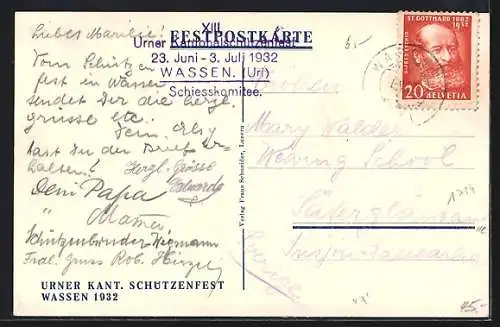 FESTPOSTKARTE
XIII.
Urner Kantonalschützenfest
23. Juni - 3. Juli 1932
WASSEN. (Uri)
Schiesskomitee.
5.-
ST. GOTTHARD 1882
1932
20 HELVETIA
WASSEN
Liebes Marilie!
Vom Schützen
fest in Wassen
sendet Dir die herzl.
grüsse etc.
Hast Du den Brief er-
halten!
Herzl. Grüsse
Eduard
Dein Papa
" Mama
Schützenbruder
Frdl. Gruss Rob.
Fröken
Mary Walder
Weaving School
Säterglänta
Insjön
Sverige
Verlag Franz Schneider, Luzern
URNER KANT. SCHÜTZENFEST
WASSEN 1932
45,-